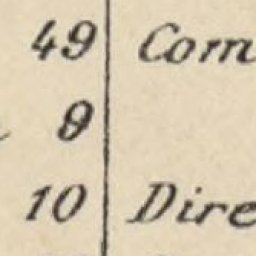 49 Com
9
10 Dire